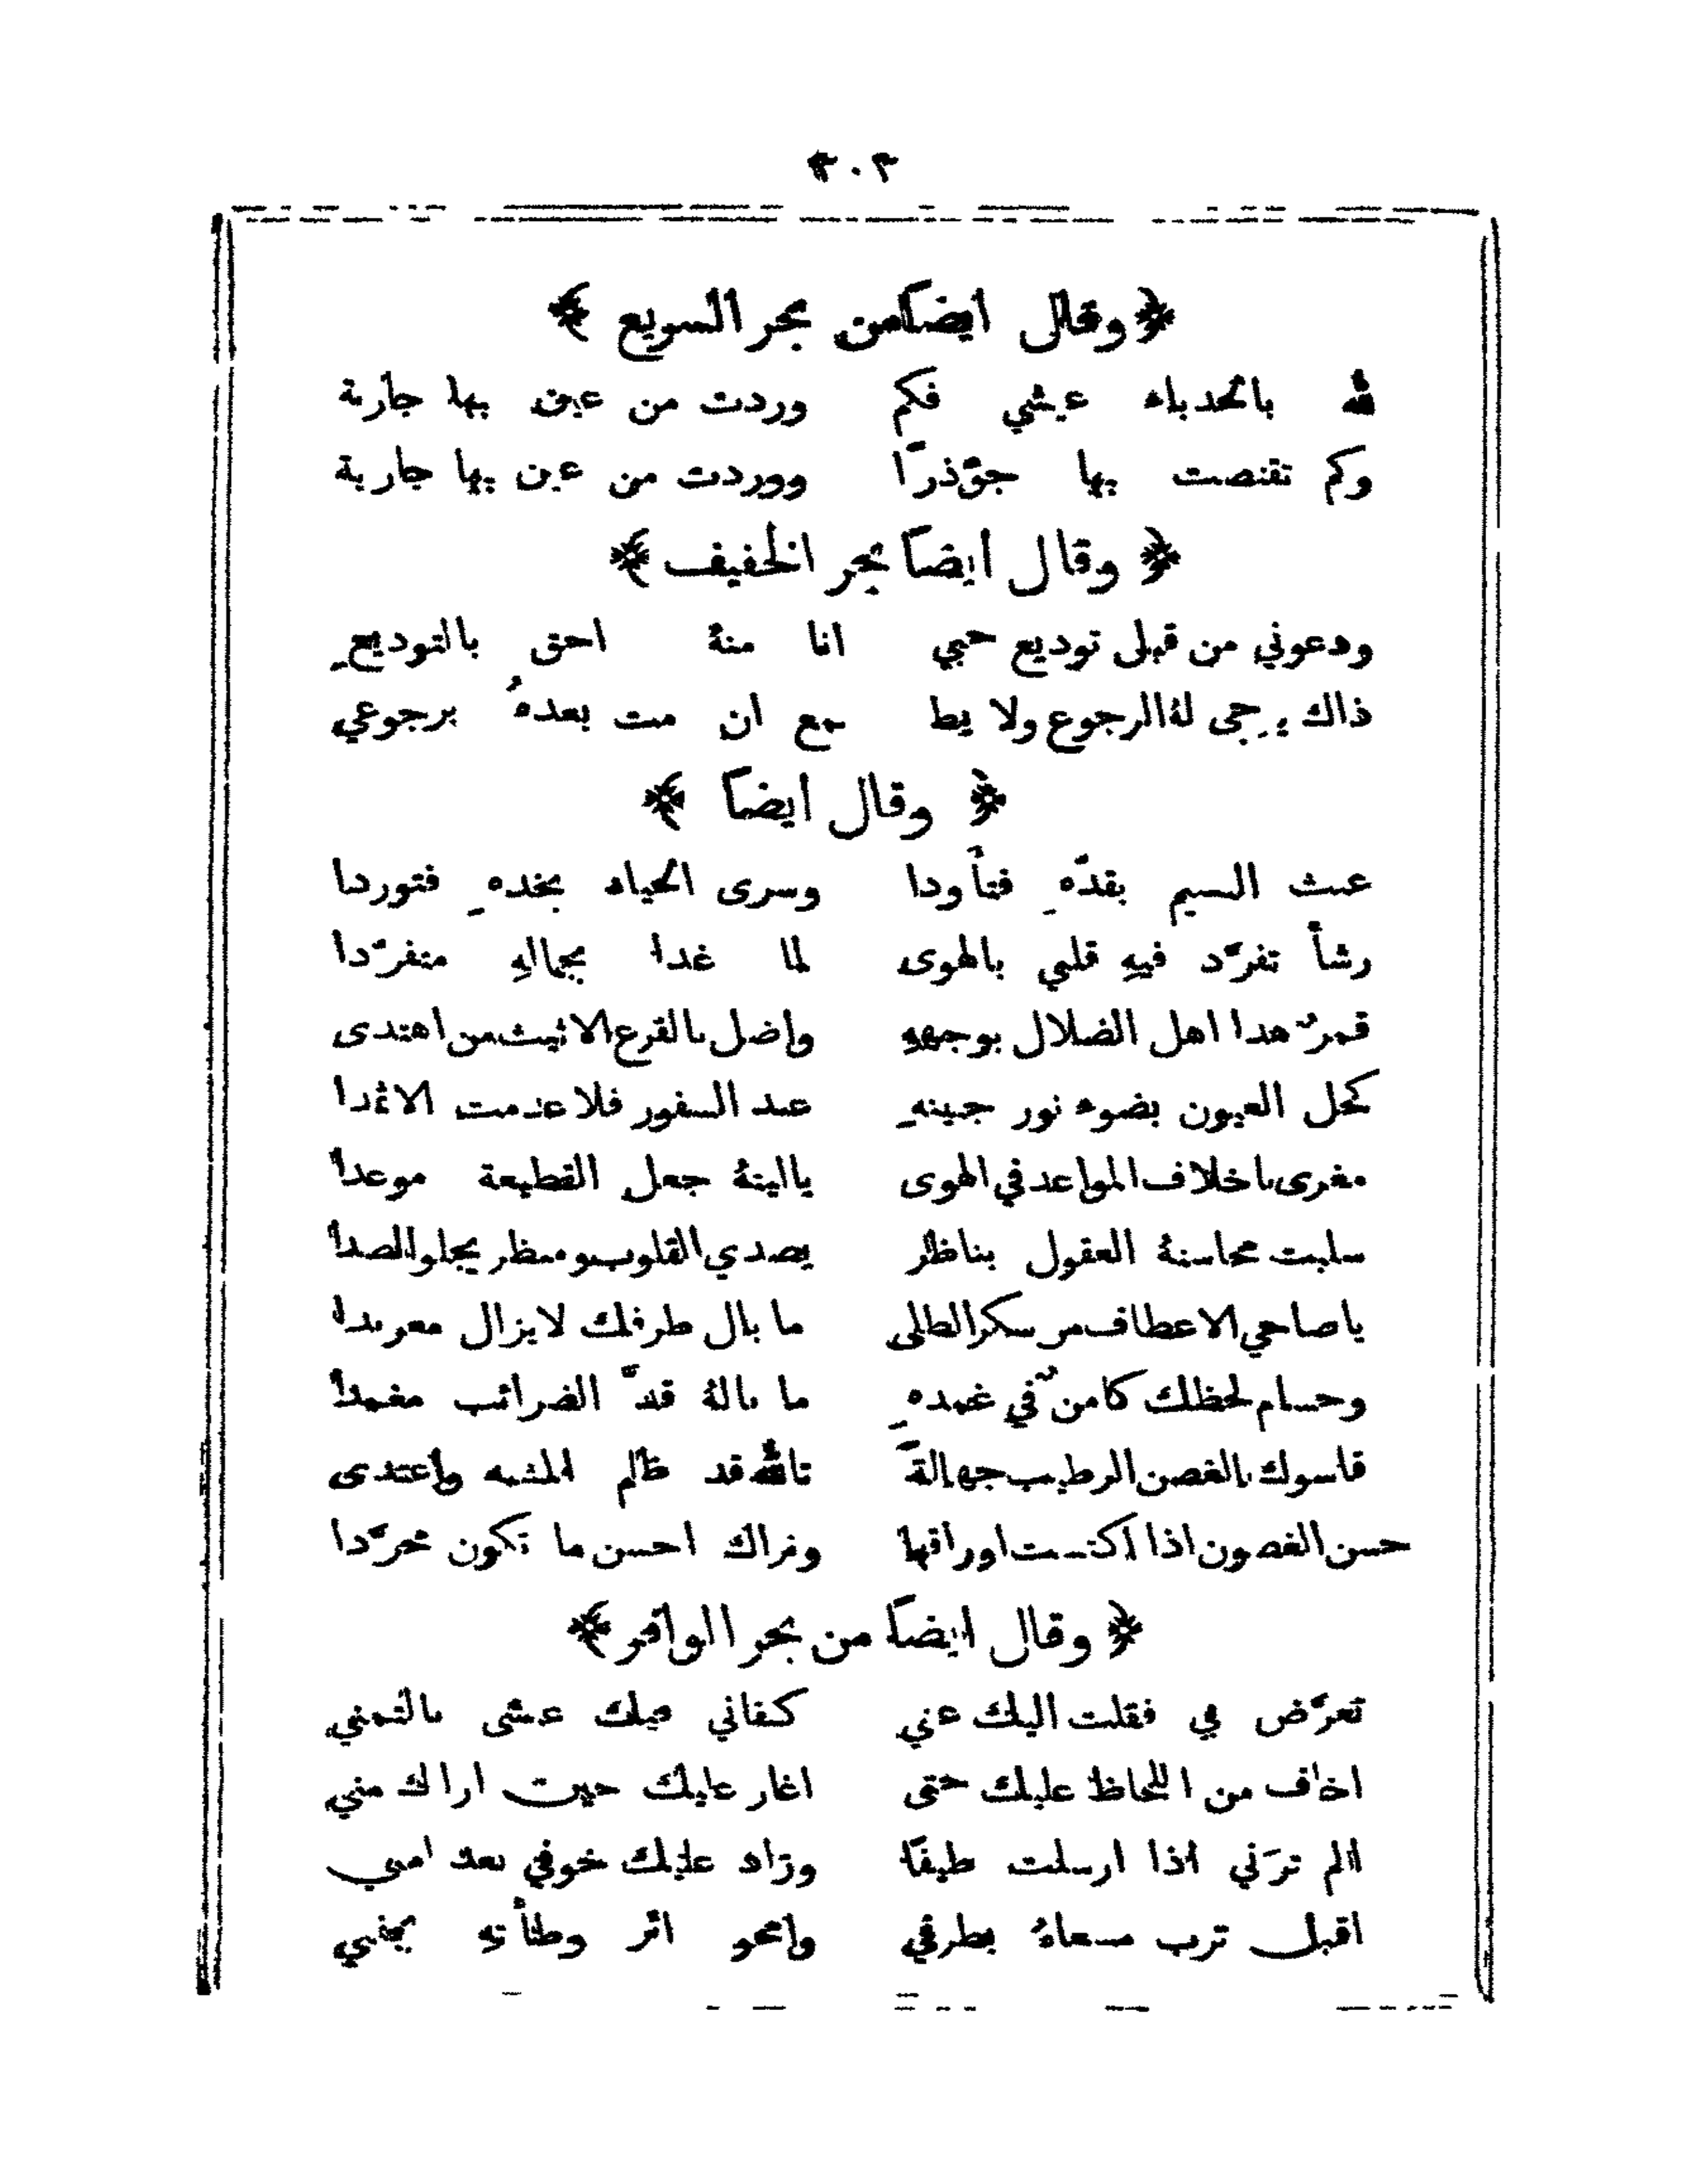 ٣٠٣
﴿ وقال ايضًا من بحر السريع ﴾
لله بالحدباء عيشي فكم وردت من عين بها جارية
وكم تقنصت بها جؤذرًا ووردت من عين بها جارية
﴿ وقال ايضًا بحر الخفيف ﴾
ودعوني من قبلى توديع حبي انا منهُ احق بالتوديعِ
ذاك يرجى لهُ الرجوع ولا يط مع ان مت بعدهُ برجوعي
﴿ وقال ايضًا ﴾
عبث النسيم بقدّهِ فتأودا وسرى الحياء بخدهِ فتوردا
رشأ تفرّد فيهِ قلبي بالهوى لما غدا بجمالهِ متفرّدا
قمرٌ هدا اهل الضلال بوجههِ واضل بالفرع الاثيث من اهتدى
كحل العيون بضوء نور جبينهِ عند السفور فلا عدمت الاثمدا
مغرى باخلاف المواعد في الهوى ياليتهُ جعل القطيعة موعدا
سلبت محاسنهُ العقول بناظر يصدي القلوب ومنظر يجلو الصدا
يا صاحي الاعطاف من سكر الطلى ما بال طرفك لا يزال معربدا
وحسام لحظك كامنٌ في غمدهِ ما بالهُ قدّ الضرائب مغمدا
قاسوك بالغصن الرطيب جهالةً تالله قد ظلم المشبه واعتدى
حسن الغصون اذا اكتست اوراقها ونراك احسن ما تكون مجرّدا
﴿ وقال ايضًا من بحر الوافر ﴾
تعرّض بي فقلت اليك عني كفاني فيك عشى بالتمني
اخاف من اللحاظ عليك حتى اغار عليك حين اراك مني
الم ترَني اذا ارسلت طيفًا وزاد عليك خوفي بعد امني
اقبل ترب مسعاهُ بطرفي وامحو اثر وطأتهِ بجفني